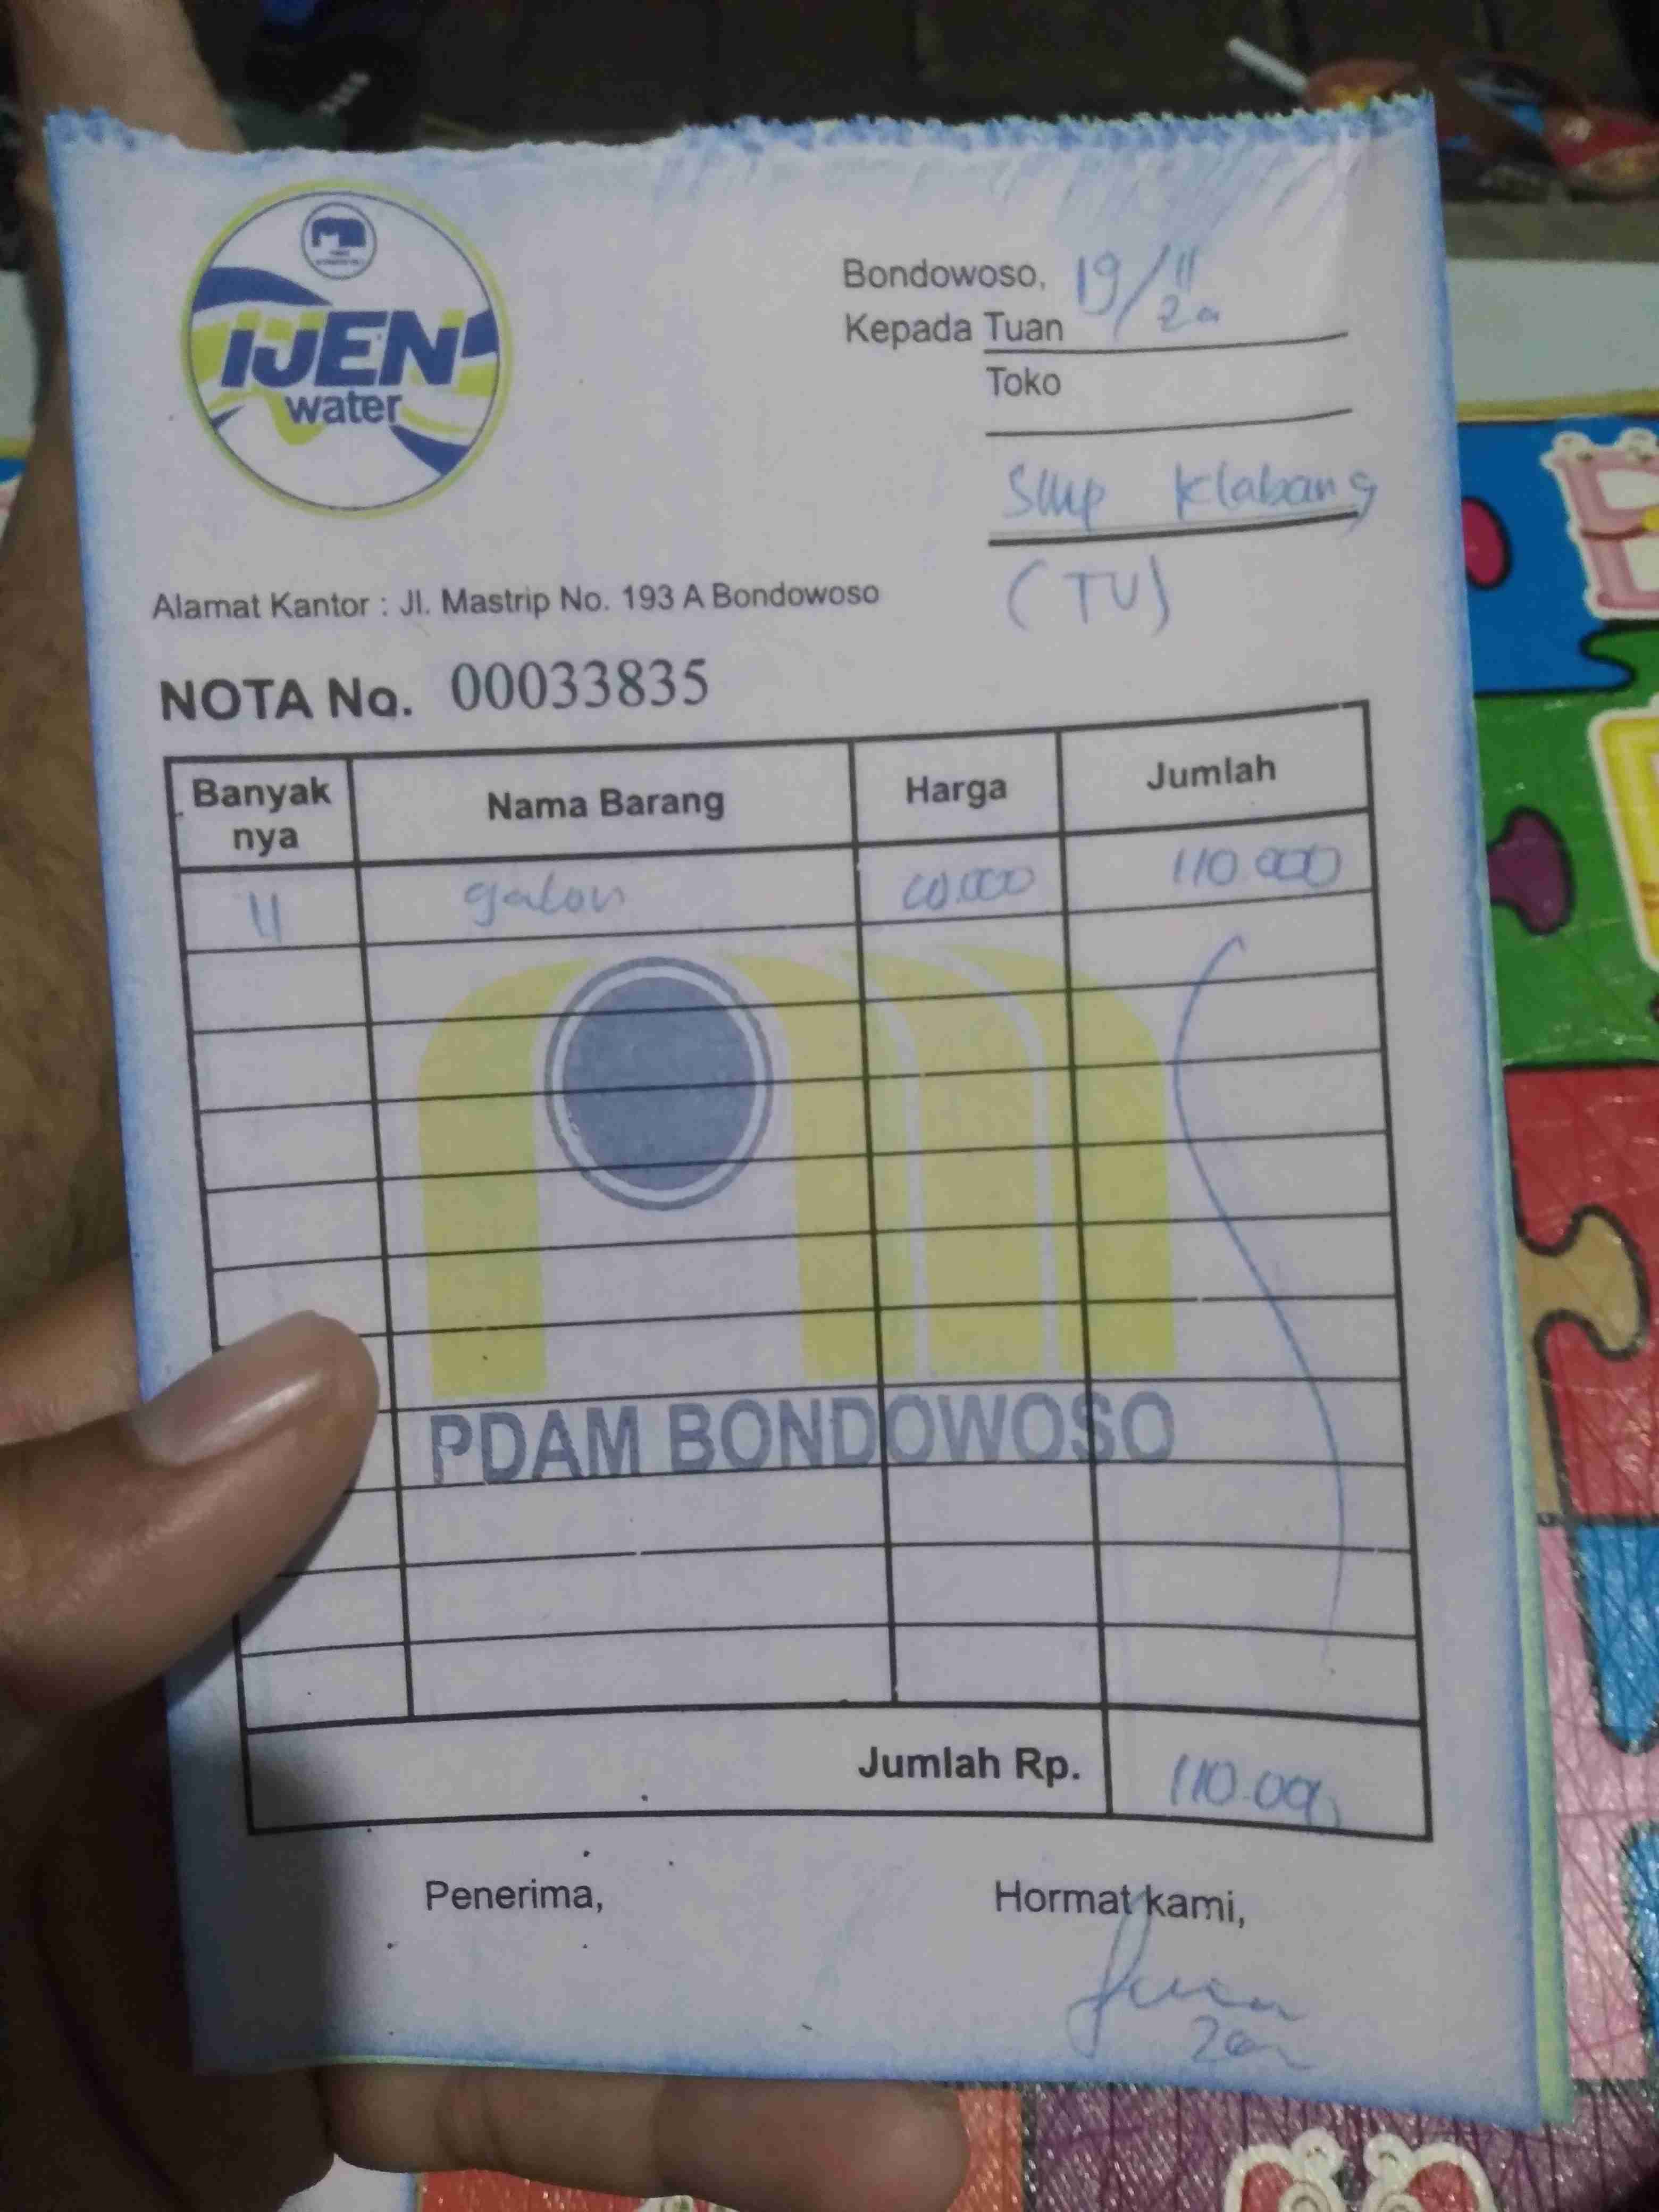 IJEN
water
Bondowoso, 19/11
Kepada Tuan
Toko
Smp Klabang
(TU)
Alamat Kantor : Jl. Mastrip No. 193 A Bondowoso
NOTA No. 00033835
Banyak nya Nama Barang Harga Jumlah
11 galon 10.000 110.000
PDAM BONDOWOSO
Jumlah Rp. 110.000
Penerima, Hormat kami,